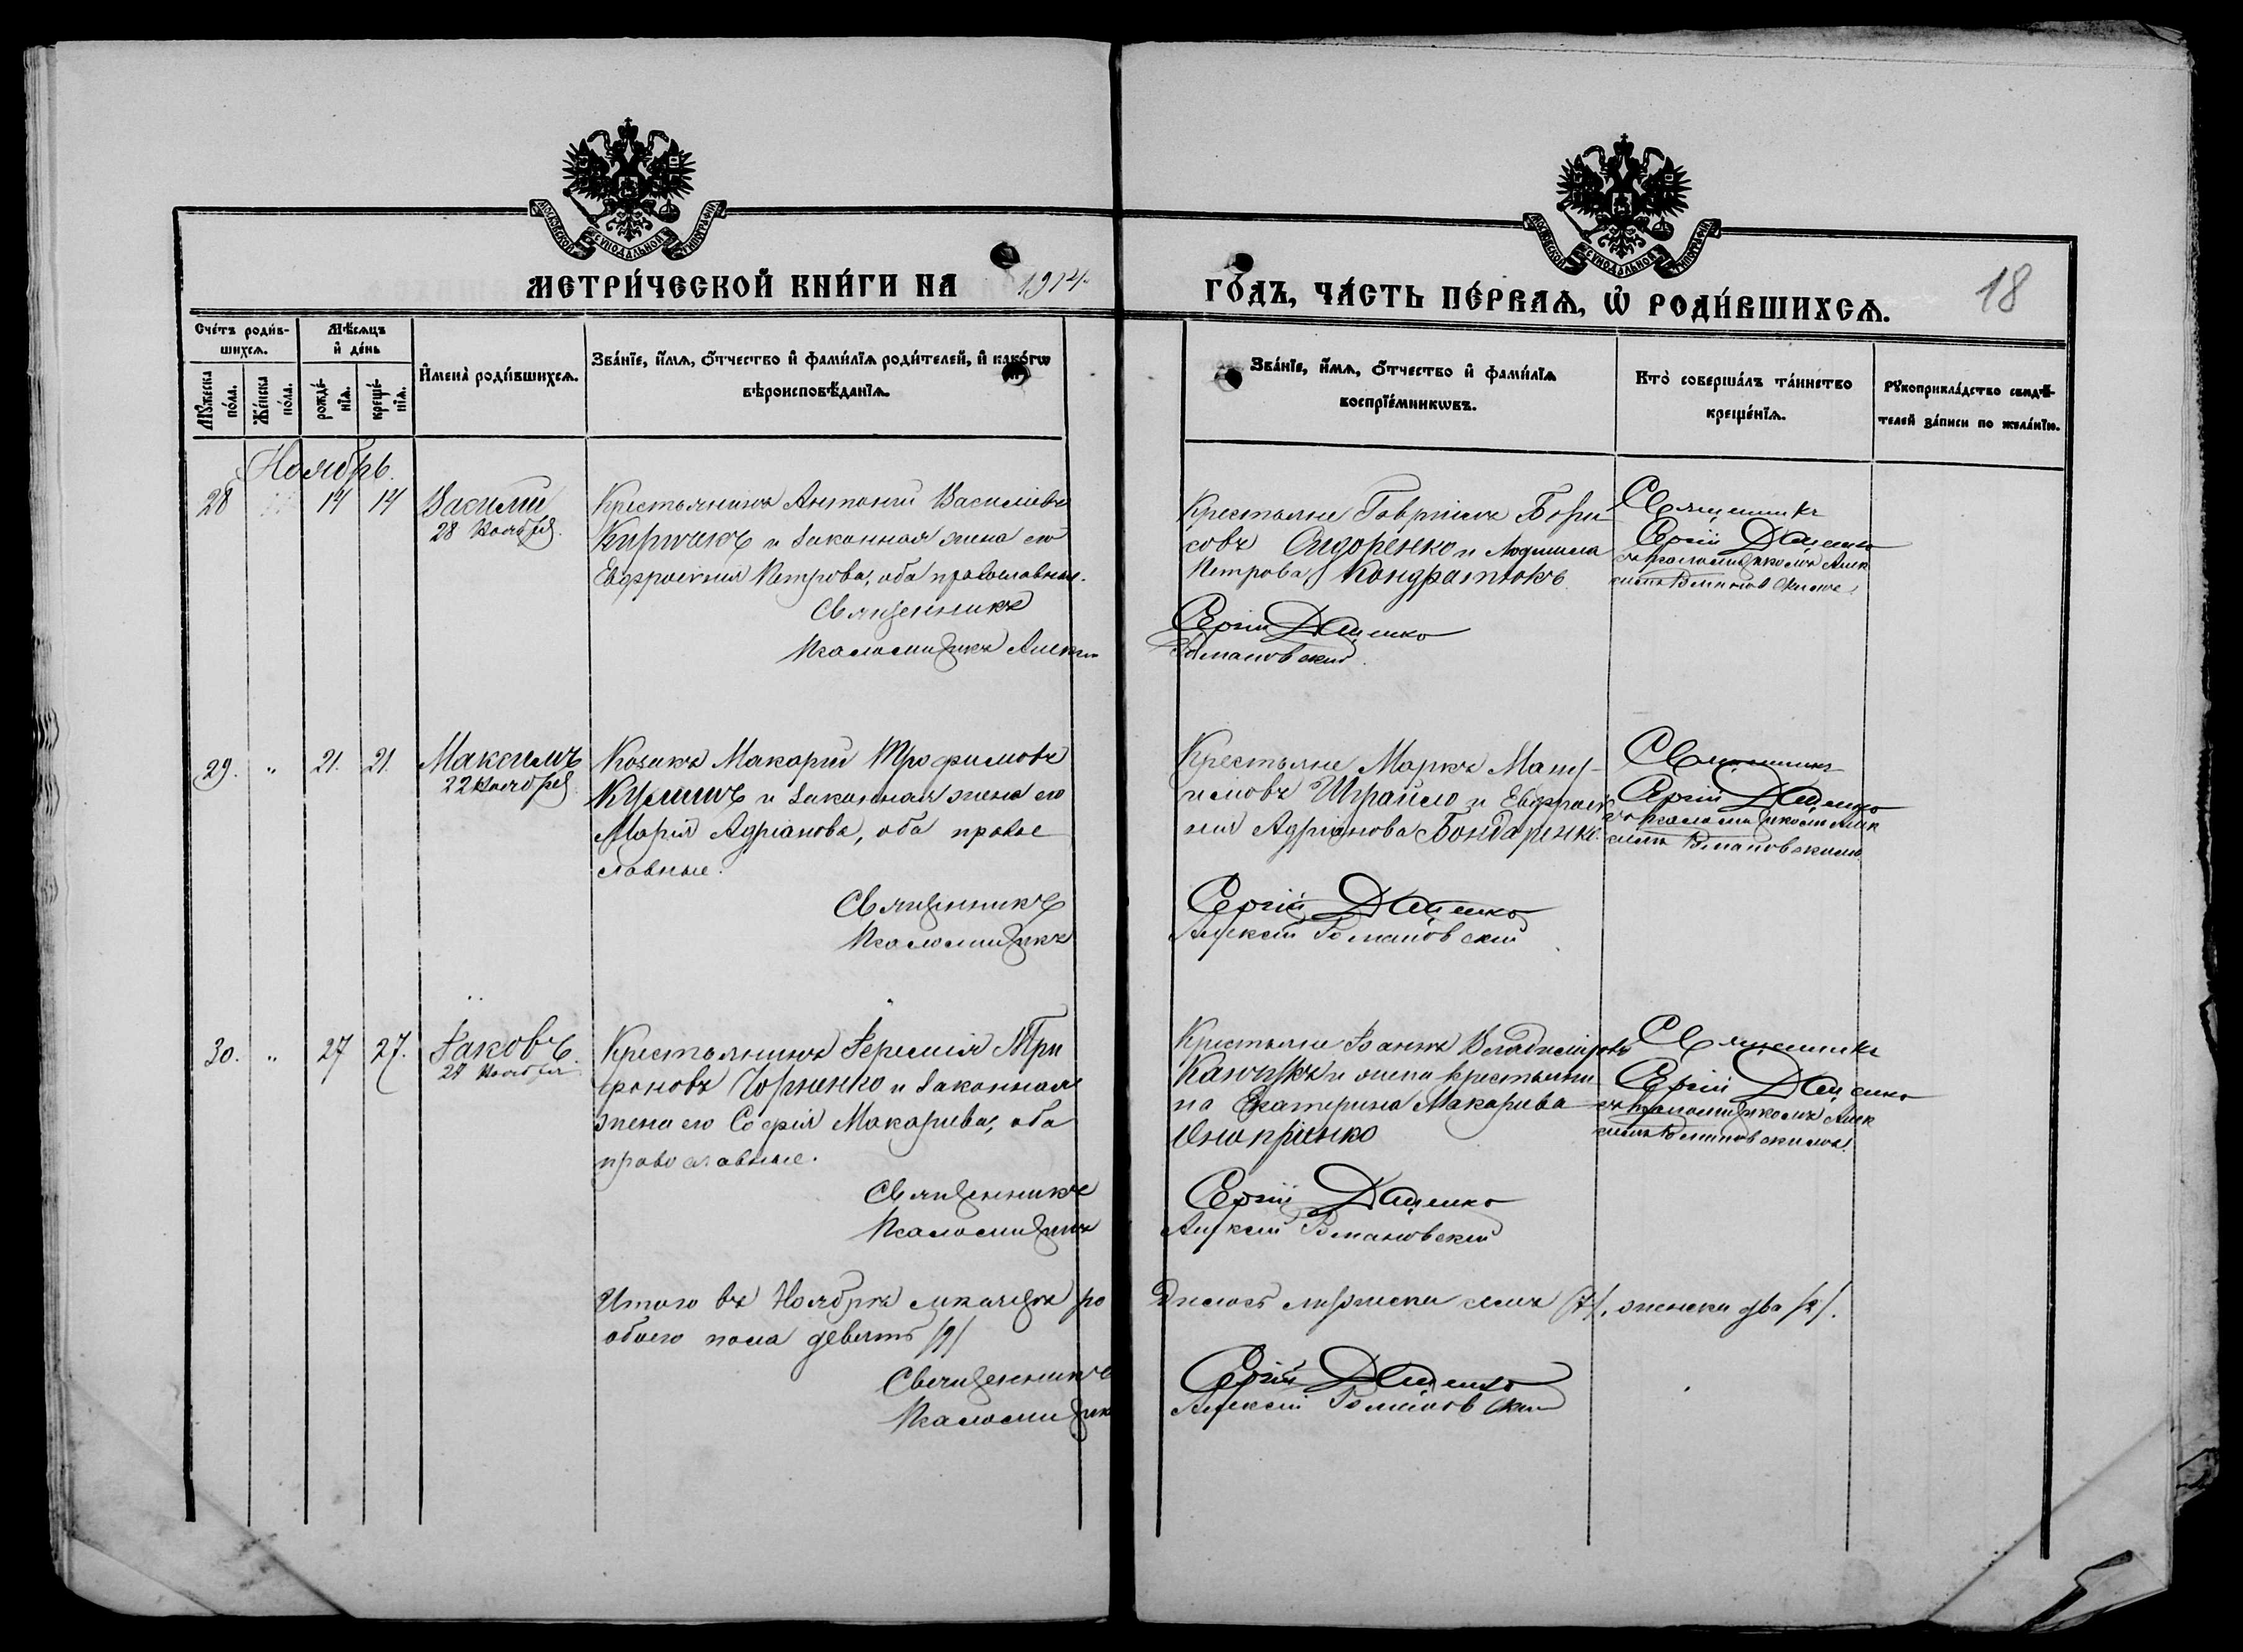 МОСКОВСКОЙ СѴНОДАЛЬНОЙ ТИПОГРАФІИ
МОСКОВСКОЙ СѴНОДАЛЬНОЙ ТИПОГРАФІИ
МЕТРИ́ЧЕСКОЙ КНИ́ГИ НА 1914.
ГО́ДЪ, ЧА́СТЬ ПЕ́РВАѦ, Ѡ҆ РОДИ́ВШИХСѦ.
18
Сче́тъ роди́в-
шихсѧ.
Мѣ́сѧцъ
и҆ де́нь
Мꙋ́жеска
по́ла.
Же́нска
по́ла.
рожде́-
нїѧ.
креще́-
нїѧ.
И҆мена̀ роди́вшихсѧ.
Зва́нїе, и҆́мѧ, ѻ҆́тчество и҆ фами́лїѧ роди́телей, и҆ како́гѡ
вѣроисповѣ́данїѧ.
Зва́нїе, и҆́мѧ, ѻ҆́тчество и҆ фами́лїѧ
воспрїе́мникѡвъ.
Кто̀ соверша́лъ та́инство
креще́нїѧ.
Рꙋкоприкла́дство свидѣ́-
телей за́писи по жела́нїю.
Ноябрь.
28 14 14 Василій
28 Ноября.
Крестьянинъ Антоній Василіевъ
и законная жена его
Евфросинія Петрова, оба православные.
Священникъ
Псаломщикъ Алексій
Крестьяне Гавріилъ Бори-
совъ Сидоренко и Людмила
Петрова Кондратюкъ
Сергій Даценко
Романовскій.
Священникъ
Сергій Даценко
съ псаломщикомъ Алек
сіемъ Романовскимъ
29. " 21. 21. Максимъ
22 Ноября
Козакъ Макарій Трофимовъ
и законная жена его
Марія Адріанова, оба право
славные.
Священникъ
Псаломщикъ
Крестьяне Маркъ
и Евфроси
нія Адріанова Бондаренко.
Сергій Даценко
Алексій Романовскій
Священникъ
Сергій Даценко
съ псаломщикомъ Алек
сіемъ Романовскимъ
30. " 27 27. Іаковъ.
27 Ноября
Крестьянинъ Іеремія Три
фоновъ Чорненко и законная
жена его Софія Макариева, оба
православные.
Священникъ
Псаломщикъ
Крестьяне Іоаннъ Владиміровъ
и жена крестьяни
на Екатерина Макариева
Оноприенко
Сергій Даценко
Алексій Романовскій
Священникъ
Сергій Даценко
съ псаломщикомъ Алек
сіемъ Романовскимъ.
Итого въ Ноябрѣ мѣсяцѣ ро
дилось мужеска семь /7/, женска два /2/.
обоего пола девять /9/
Священникъ
Псаломщикъ
Сергій Даценко
Алексій Романовскій